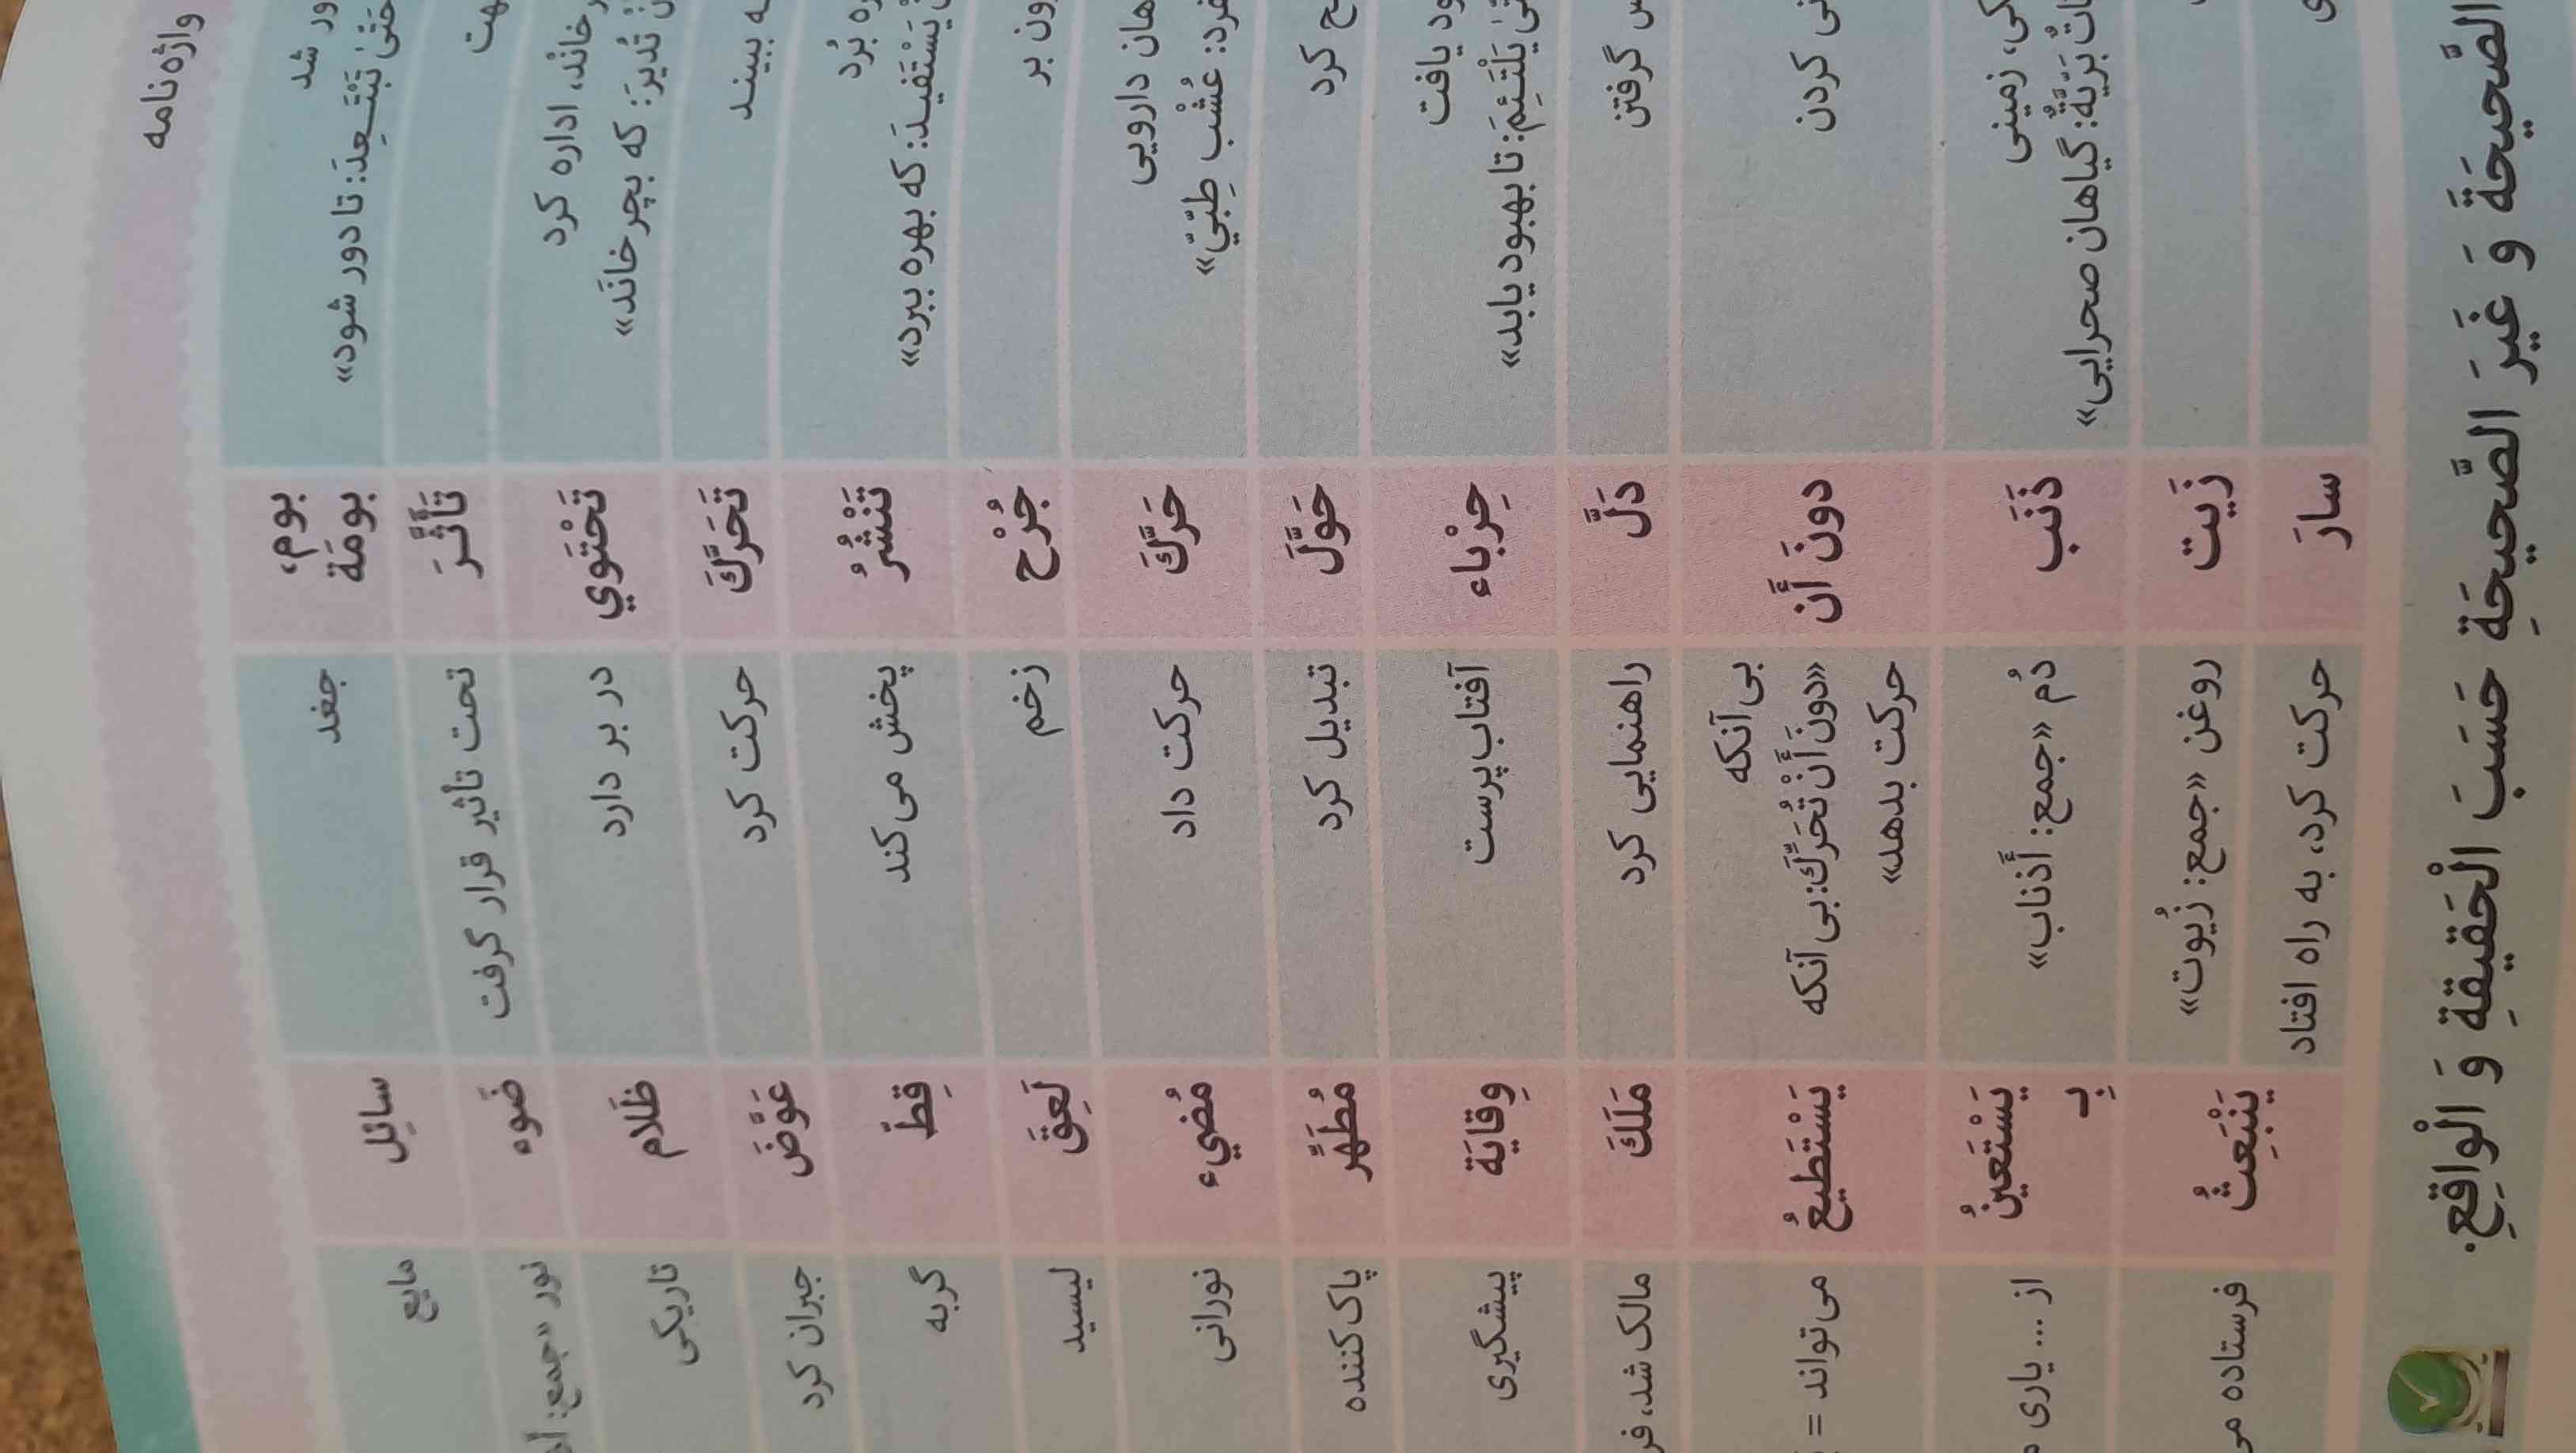 واژه‌نامه
شد
تَبْتَعِدَ: تا دور شود»
بوم،
بومَة
جغد
سائِل
مایع
تَأَثَّرَ
تحت تأثیر قرار گرفت
ضَوء
نور «جمع:
اداره کرد
تُدیرَ: که بچرخانَد»
تَحْتَوي
در بر دارد
ظَلام
تاریکی
ببیند
تَحَرَّكَ
حرکت کرد
عَوَّضَ
جبران کرد
بُرد
یَسْتَفیدَ: که بهره ببرد»
تَنْشُرُ
پخش می‌کند
قِطّ
گربه
بر
جُرْح
زخم
لَعِقَ
لیسید
دارویی
عُشْب طِبّيّ»
حَرَّكَ
حرکت داد
مُضيء
نورانی
کرد
حَوَّلَ
تبدیل کرد
مُطَهِّر
پاک‌کننده
یافت
یَلْتَئِمَ: تا بهبود یابد»
حِرْباء
آفتاب‌پرست
وِقایَة
پیشگیری
گرفتن
دَلَّ
راهنمایی کرد
مَلَكَ
مالک شد،
کردن
دونَ أَن
بی‌آنکه
«دونَ أَنْ تُحَرِّكَ: بی‌آنکه
حرکت بدهد»
یَسْتَطیعُ
می‌تواند =
زمینی
بَرّیَّةٌ: گیاهان صحرایی»
ذَنَب
دُم «جمع: أَذناب»
یَسْتَعینُ
بِـ
از ... یاری
زَیت
روغن «جمع: زُیوت»
یَنْبَعِثُ
فرستاده
سارَ
حرکت کرد، به راه افتاد
الصَّحیحَةَ وَ غَیرَ الصَّحیحَةِ حَسَبَ الْحَقیقَةِ وَ الْواقِعِ.